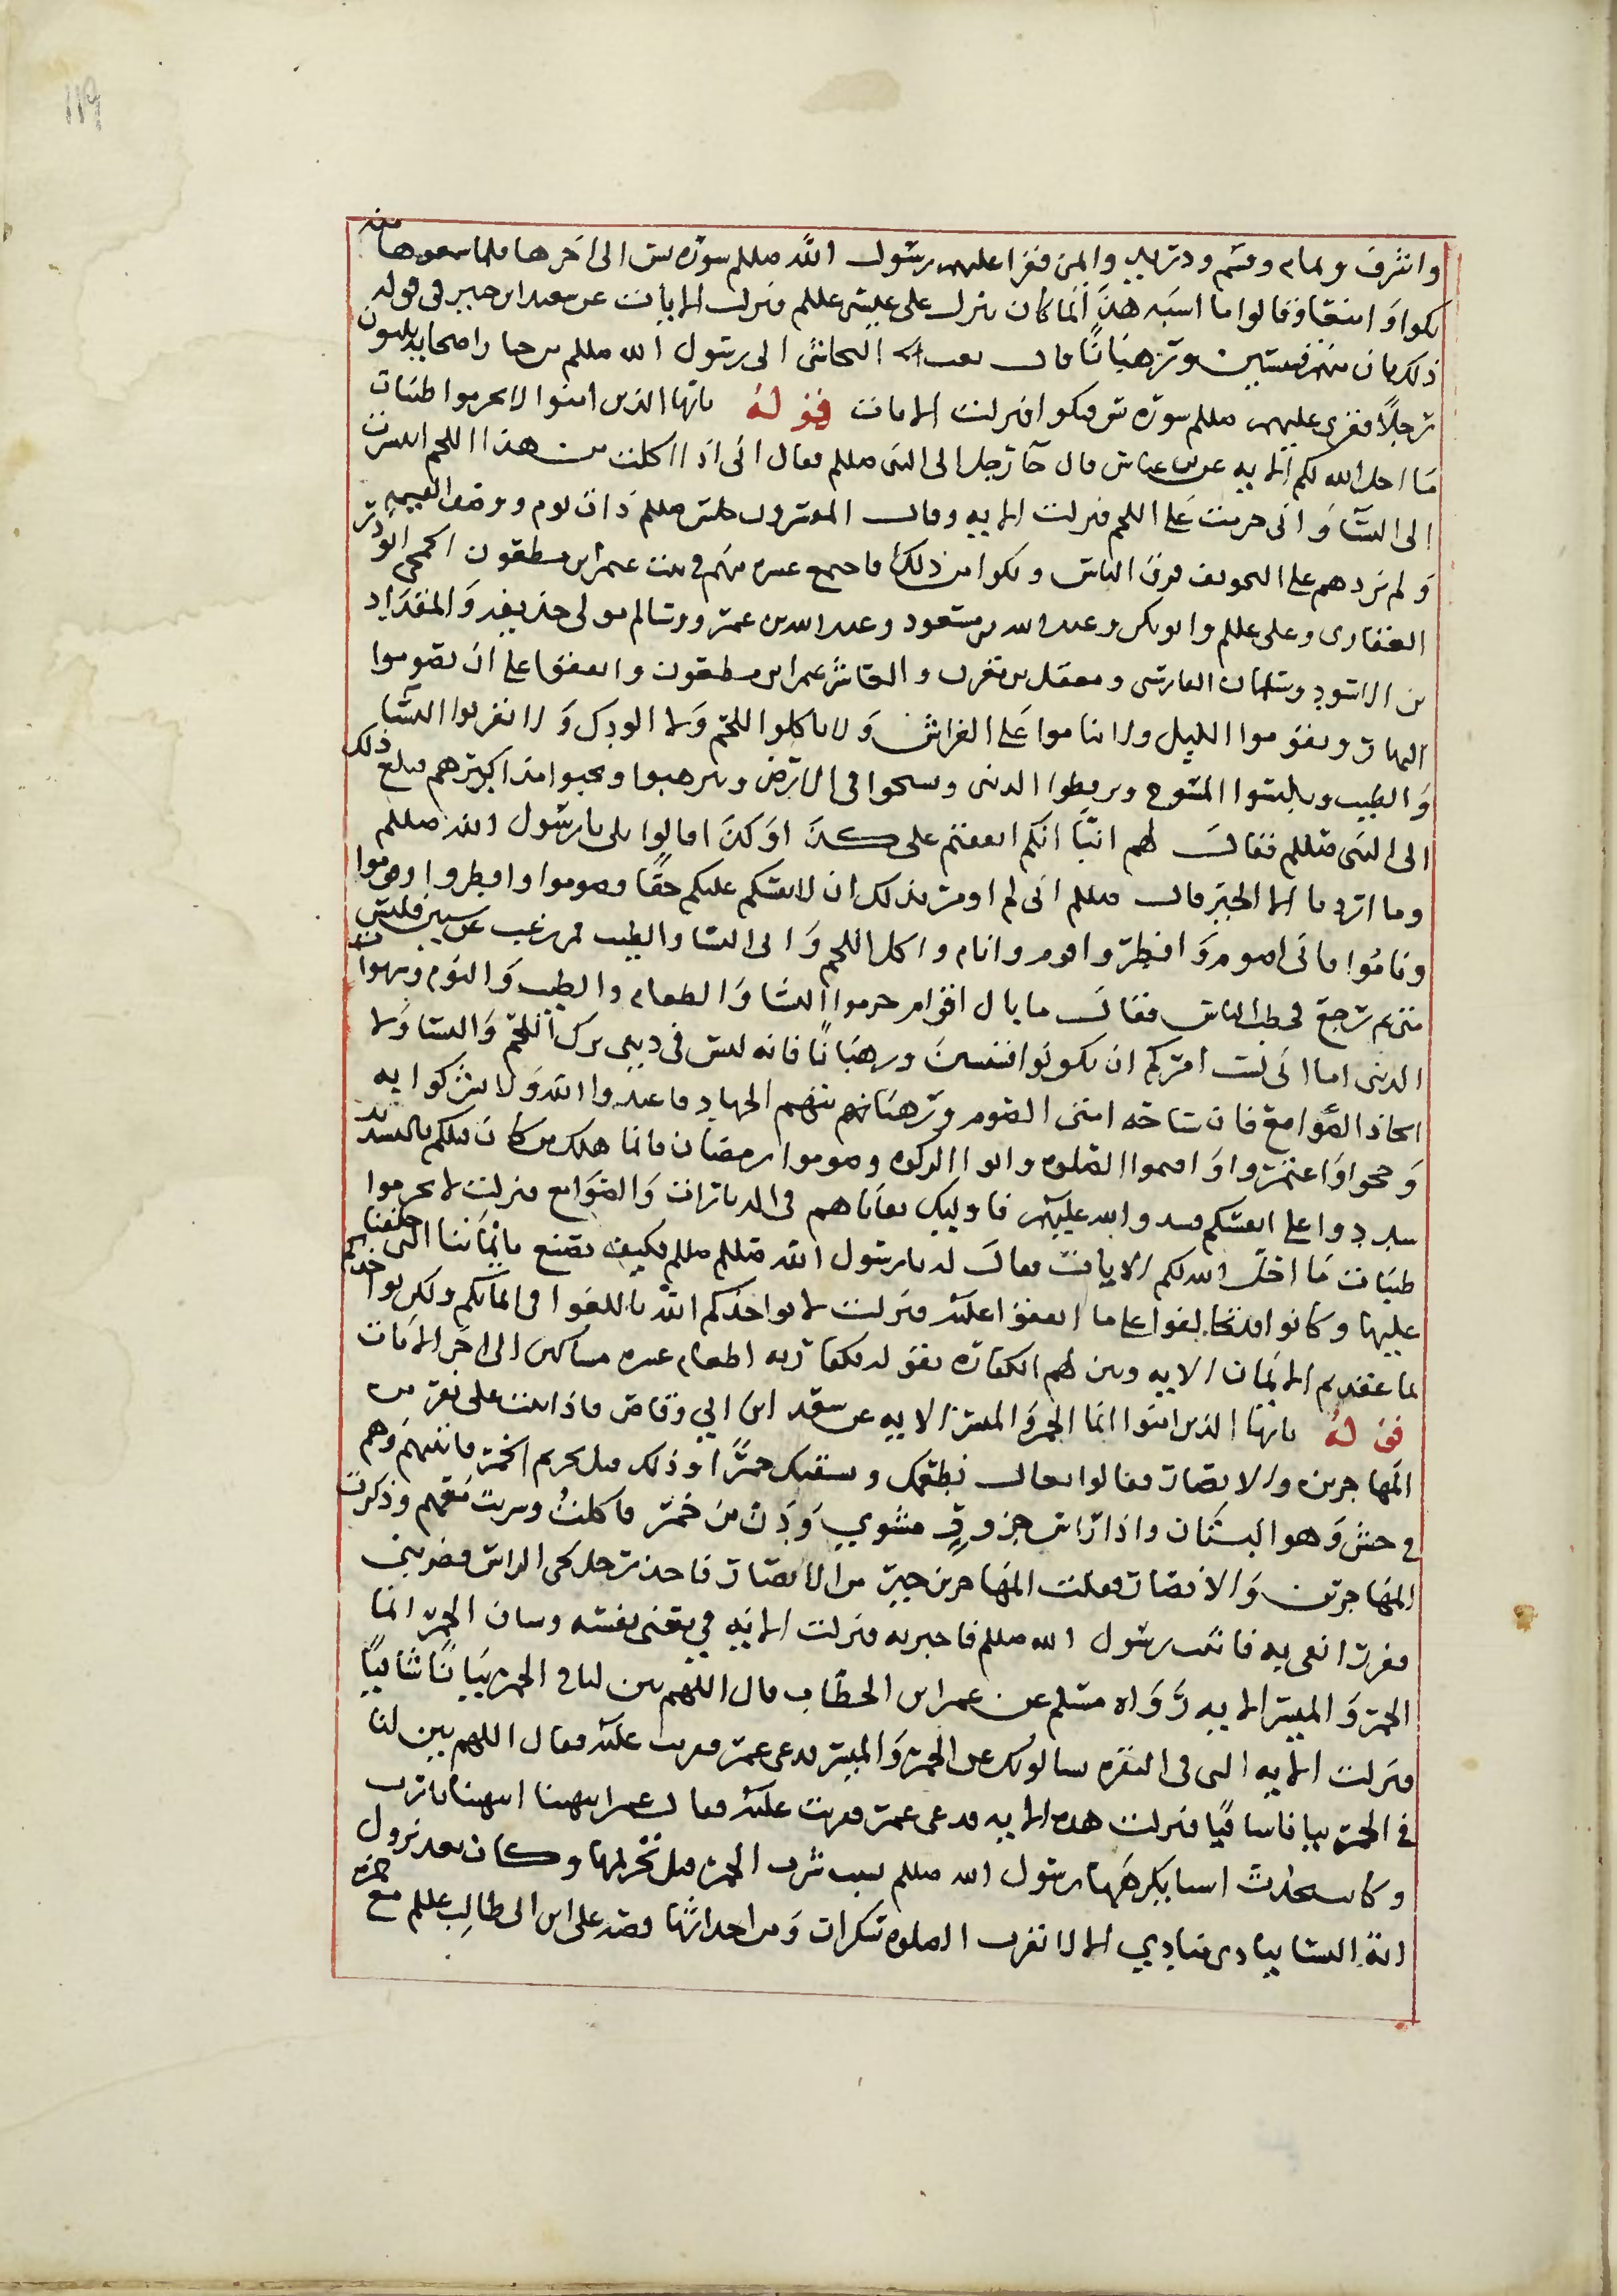 119
واشرف وتمام وقثم ودريد وايمن فقرا عليهم رسول الله صللم سوره يس الى اخرها فلما سمعوها
بكوا وامنوا وقالوا ما اشبه هذا انما كان ينزل على عيسى عللم فنزلت الايات عن سعيد ابن جبير فى قوله
ذلك بان منهم قسيسين ورهبانا قال بعث النجاشى الى رسول الله صللم من خيار اصحابه ثلثون
رجلا فقرى عليهم صللم سوره يس فبكوا فنزلت الايات قوله يايها الذين امنوا لا تحرموا طيبات
ما احل الله لكم الايه عن بن عباس قال جا رجل الى النبى صللم فقال انى اذا اكلت من هذا اللحم انتشرت
الى النسا وانى حرمت على اللحم فنزلت الايه وقال المفسرون جلس صللم ذات يوم ووصف القيمه
ولم يزدهم على التخويف فرق الناس وبكوا من ذلك فاجتمع عشره منهم فى بيت عثمان بن مظعون الجمحى ابو ذر
الغفارى وعلى عللم وابو بكر وعبد الله بن مسعود وعبد الله بن عمر وسالم مولى حذيفه والمقداد
بن الاسود وسلمان الفارسى ومعقل بن مقرن والعاشر عمر ابن مظعون واتفقوا على ان يصوموا
النهار ويقوموا الليل ولا يناموا على الفراش ولا ياكلوا اللحم ولا الودك ولا يقربوا النسا
والطيب ويلبسوا المسوح ويرفضوا الدنى ويسيحوا فى الارض ويترهبوا ويجبوا مذاكيرهم فبلغ ذلك
الى النبى صللم فقال لهم انبا انكم اتفقتم على كذا او كذا قالوا بلى يا رسول الله صللم
وما اردنا الا الخير قال صللم انى لم اومر بذلك ان لانفسكم عليكم حقا فصوموا وافطروا وقوموا
وناموا فانى اصوم وافطر واقوم وانام واكل اللحم واتى النسا والطيب فمن رغب عن سنتى فليس
منى ثم رجع فخطب الناس فقال ما بال اقوام حرموا النسا والطعام والطيب والنوم وشهوات
الدنى اما انى لست امركم ان تكونوا قسيسين ورهبانا فانه ليس فى دينى ترك اللحم والنسا ولا
اتخاذ الصوامع فان سياحه امتى الصوم ورهبانيتهم الجهاد فاعبدوا الله ولا تشركوا به
وحجوا واعتمروا واقيموا الصلوه واتوا الزكوه وصوموا رمضان فانما هلك من كان قبلكم بالتشديد
شددوا على انفسكم فشدد الله عليهم فاوليك بقاياهم فى الديارات والصوامع فنزلت لا تحرموا
طيبات ما احل الله لكم الايات فقال له يا رسول الله صللم فكيف نصنع بايماننا التى حلفنا
عليها وكانوا قد تحالفوا على ما اتفقوا عليه فنزلت لا يواخذكم الله باللغوا فى ايمانكم ولكن يواخذكم
بما عقدتم الايمان الايه وبين لهم الكفاره بقوله فكفارته اطعام عشره مساكين الى اخر الايات
قوله يايها الذين امنوا انما الخمر والميسر الايه عن سعد ابن ابي وقاص قال اتيت على نفر من
المهاجرين والانصار فقالوا تعال نطعمك ونسقيك خمرا وذلك قبل تحريم الخمر فاتيتهم وهم
فى حش وهو البستان واذا راس جزور مشوي ودن من خمر فاكلت وشربت معهم وذكرت
المهاجرين والانصار فقلت المهاجرين خير من الانصار فاخذ رجل لحى الراس فضربنى
ففزر انفى به فاتيت رسول الله صللم فاخبرته فنزلت الايه في يعنى نفسه وسان الخمر انما
الخمر والميسر الايه رواه مسلم عن عمر ابن الخطاب قال اللهم بين لنا فى الخمر بيانا شافيا
فنزلت الايه التى فى البقره يسالونك عن الخمر والميسر فدعى عمر فقريت عليه فقال اللهم بين لنا
فى الخمر بيانا شافيا فنزلت هذه الايه فدعى عمر فقريت عليه فقال عمر انتهينا انتهينا يا رب
وكانت تحدث اشيا يكرهها رسول الله صللم بسبب شرب الخمر قبل تحريمها وكان بعد نزول
ايه النسا ينادى منادي الا لا تقرب الصلوه سكران ومن احداثها قصه على ابن ابى طالب عللم مع حمزه